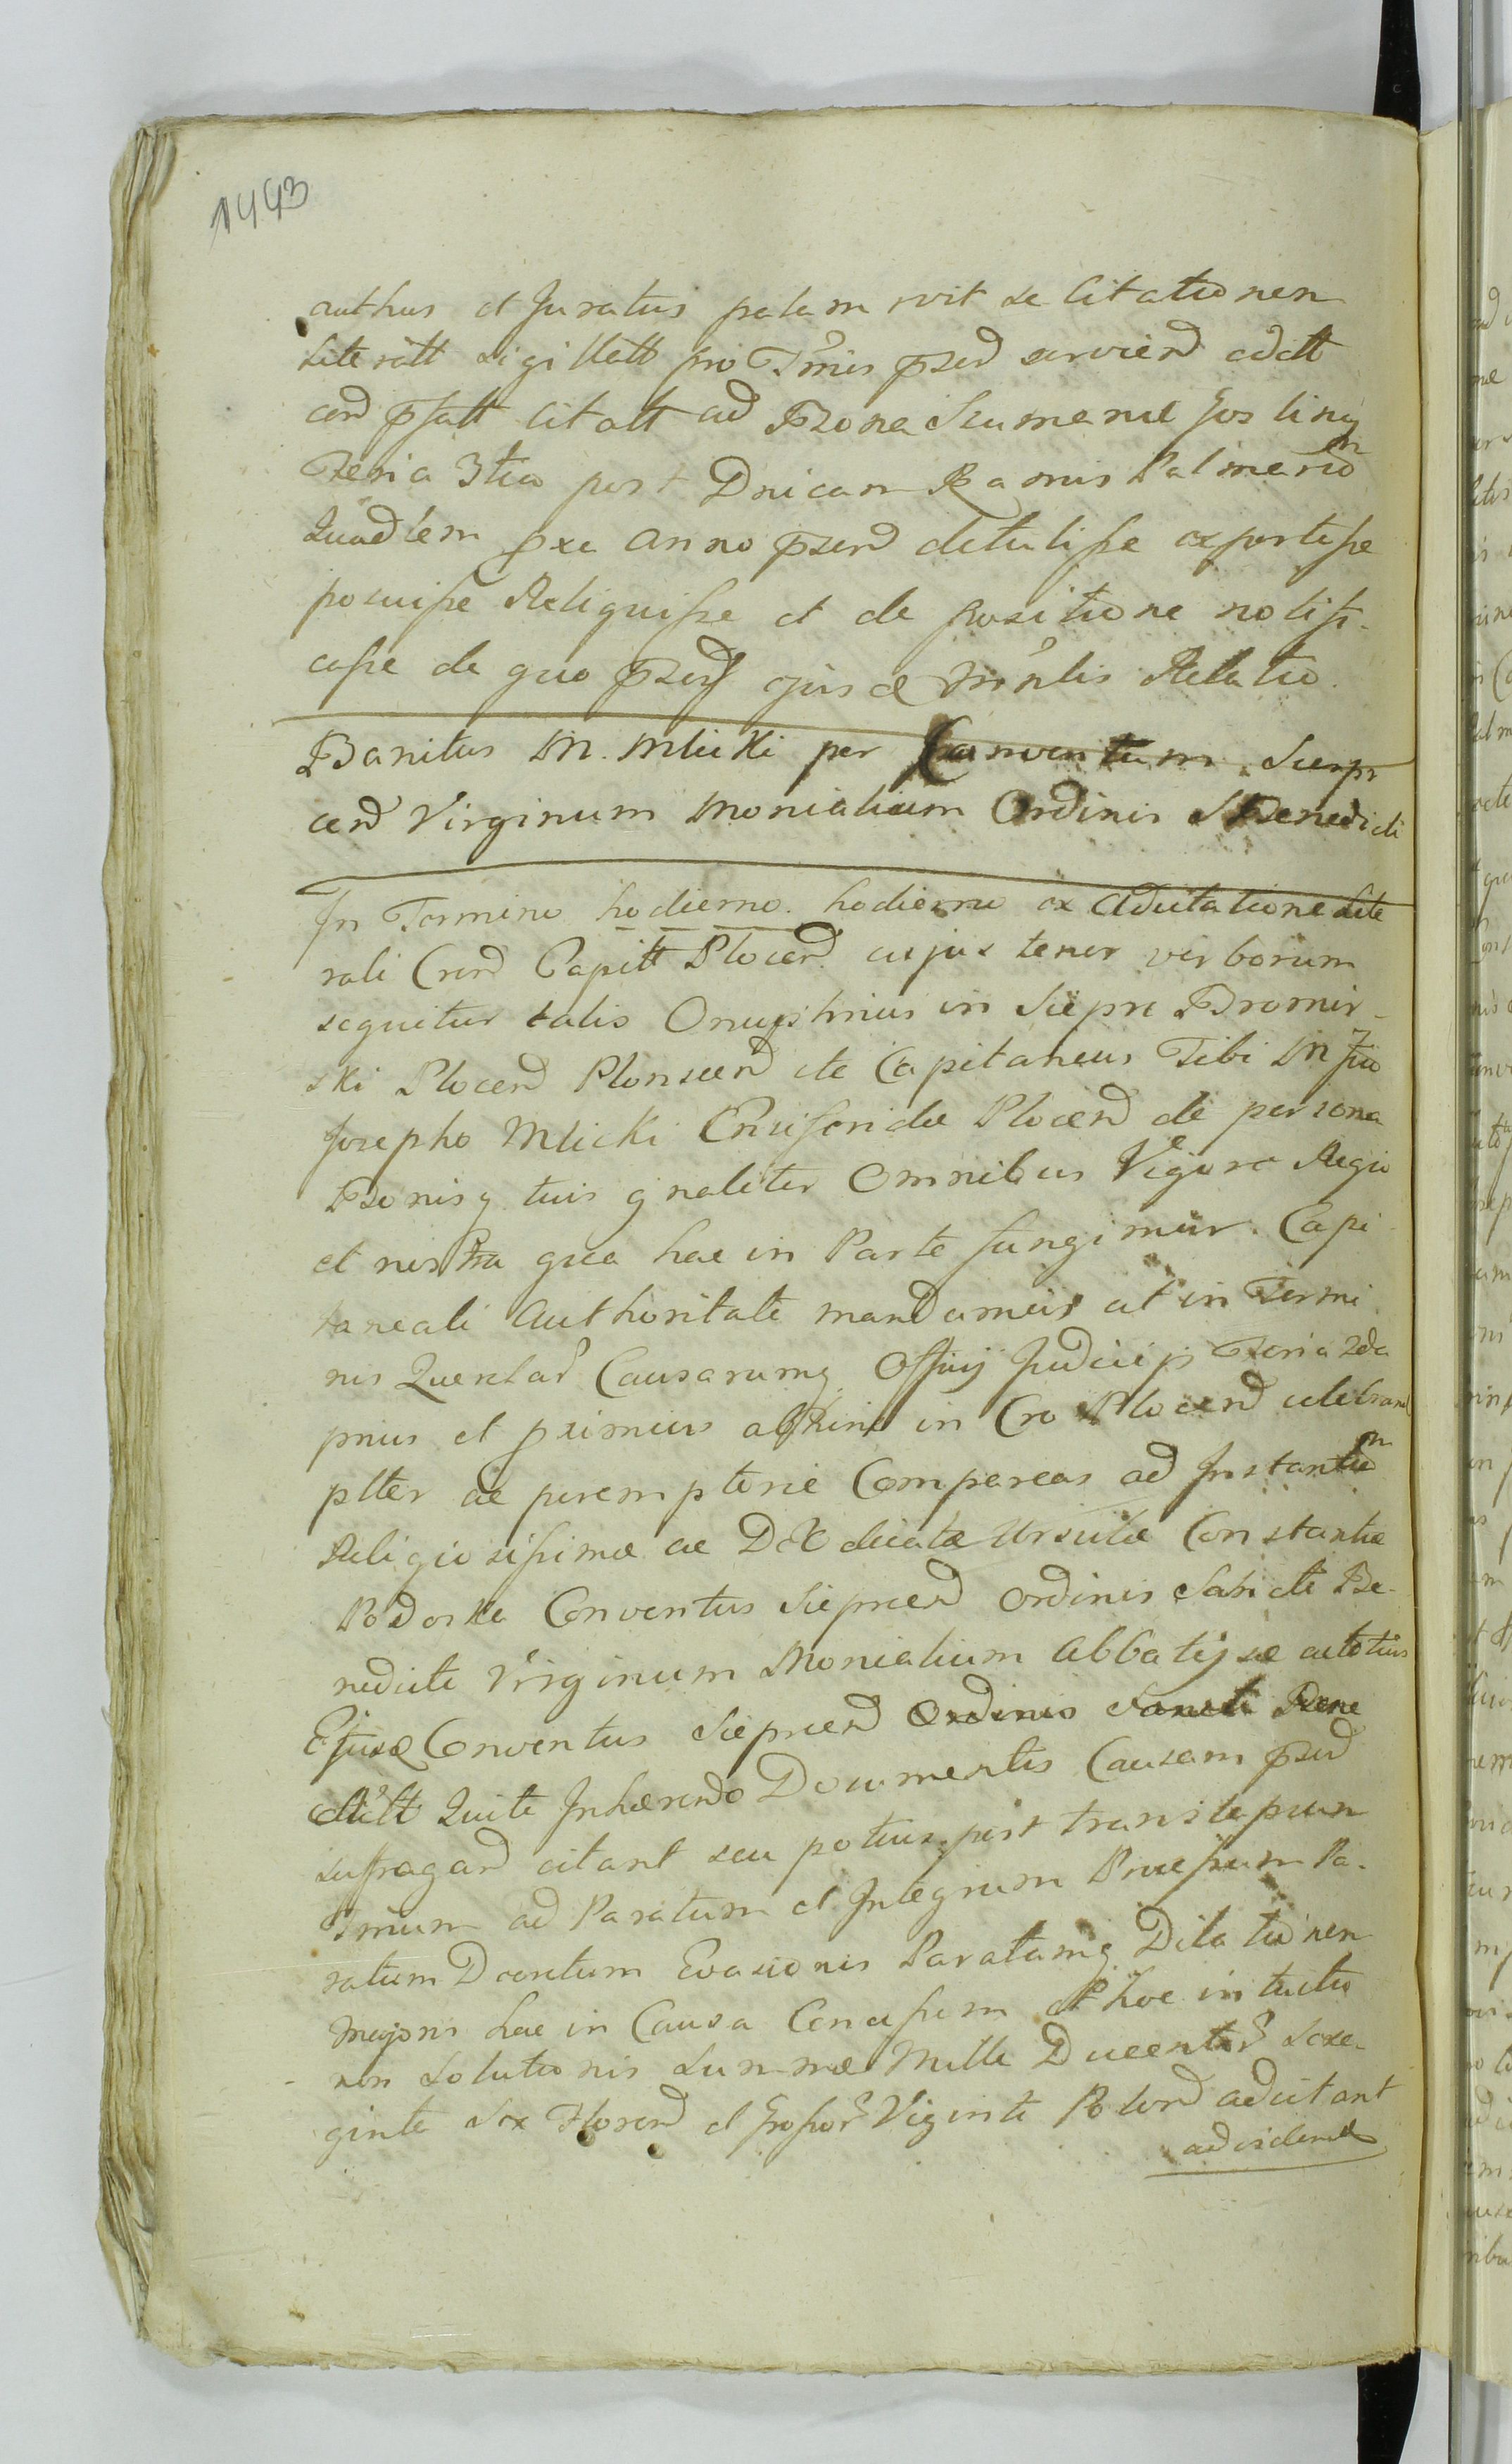 1443
authus et Juratus palam rvit se Citationen
Literatt sigillatt pro Tmis pzed servien adctt
cen psatt Citatt ad Bona Szumanie Gostiny
Feria 3tia post Dnicam Ramis Palmarum
Quadlem pxe Anno pzen detulisse asportasse
posuisse Reliquisse et de positione notifi-
casse de quo pzens ejusd Mnlis Relatio.
Banitus M. Mlicki per Conventum Sierpr
cen Virginum Monialium Ordinis S Benedicti
In Termino hodierno. hodierno ex Adcitatione Lite
rali Cren Capitt Plocen cujus tenor verborum
sequitur talis Onuphrius in Siepre Bromir-
ski Plocen Plonscen etc Capitaneus Tibi M fico
Josepho Mlicki Ensiferidae Plocen de persona
Bonisq tuis gnaliter Omnibus Vigore Regia
et nostra qua hac in Parte fungimur. Capi-
taneali Authoritate mandamus ut in Termi
nis Querelar Causarumq Officij Judicij Feria 2da
prius et primus abhinc in Cro Plocen celebran
plter ac peremptorie Compareas ad Instantiam
Religiosissimae ac D O dicatae Ursulae Constantiae
Podoska Conventus Sieprcen Ordinis Sancti Be-
nedicti Virginum Monialium Abbatissae ac totius
Ejusd Conventus Sieprcen Ordinis Sancti Bene
dicti Inhaerendo Documentis Causam pzed
suffragan citant seu potius post transitssum
Tminum ad Paratum et Integrum Pa-
ratum Docentum Evasionis Paratamq Dilationen
Majoris hac in Causa Concessum et hoc intuitu
non Solutionis Summae Mille Ducentor Sexa-
ginta Sex Floren et grossor Viginti Polon adcitant
ad videnda